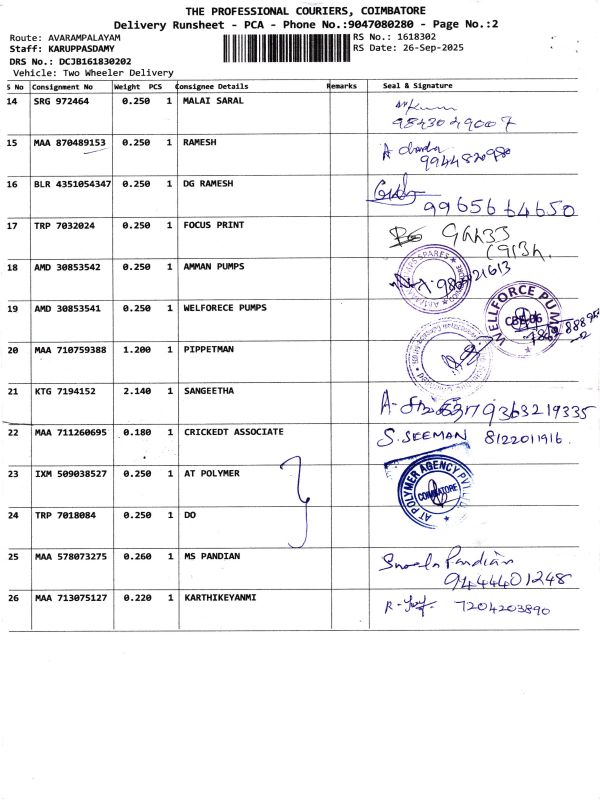 THE PROFESSIONAL COURIERS, COIMBATORE
Delivery Runsheet - PCA - Phone No.:9047080280 - Page No.:2
Route: AVARAMPALAYAM RS No.: 1618302
Staff: KARUPPASDAMY RS Date: 26-Sep-2025
DRS No.: DCJB161830202
Vehicle: Two Wheeler Delivery
S No Consignment No Weight PCS Consignee Details Remarks Seal & Signature
14 SRG 972464 0.250 1 MALAI SARAL
9843049007
15 MAA 870489153 0.250 1 RAMESH
9944820980
16 BLR 4351054347 0.250 1 DG RAMESH
9965664650
17 TRP 7032024 0.250 1 FOCUS PRINT
18 AMD 30853542 0.250 1 AMMAN PUMPS
19 AMD 30853541 0.250 1 WELFORECE PUMPS
WELLFORCE PUMPS
CBE-06
20 MAA 710759388 1.200 1 PIPPETMAN
21 KTG 7194152 2.140 1 SANGEETHA
9363219335
22 MAA 711260695 0.180 1 CRICKEDT ASSOCIATE S. SEEMAN 8122011916.
23 IXM 509038527 0.250 1 AT POLYMER
AT POLYMER AGENCY PVT LTD
COIMBATORE
24 TRP 7018084 0.250 1 DO
25 MAA 578073275 0.260 1 MS PANDIAN Pandian
9444401248
26 MAA 713075127 0.220 1 KARTHIKEYANMI 7204203890